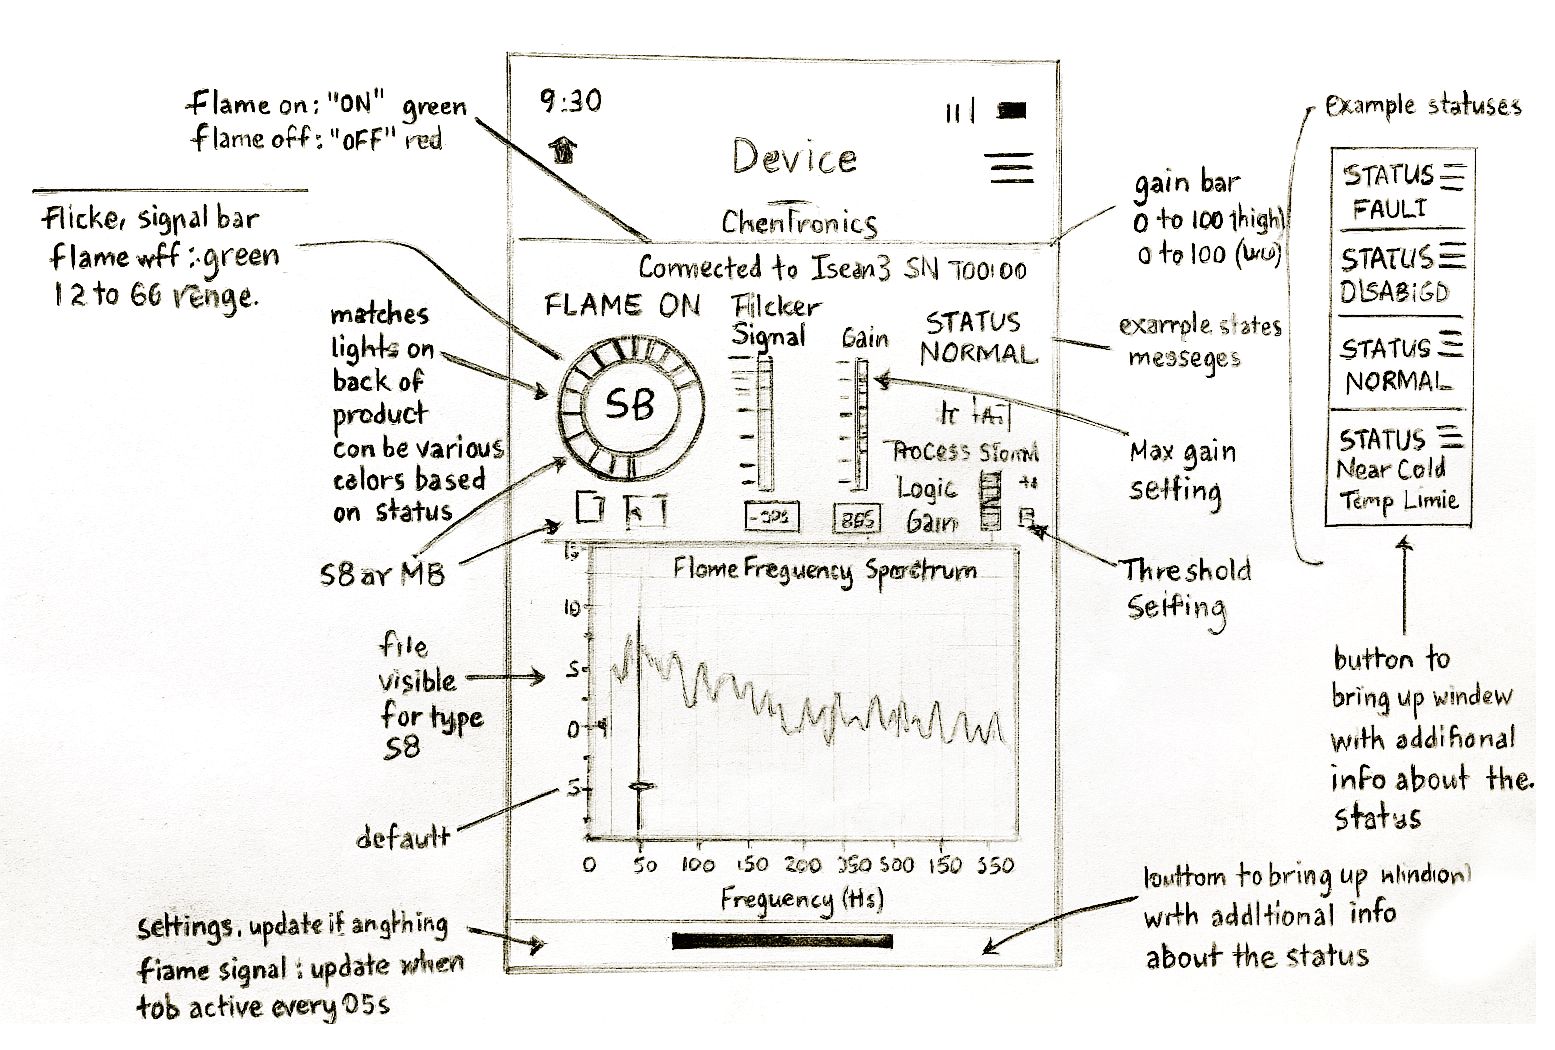 Flame on: "ON" green
flame off: "OFF" red
Flicke, signal bar
flame wff : green
12 to 66 renge.
matches
lights on
back of
product
con be various
calors based
on status
S8 ar MB
file
visible
for type
S8
default
settings, update if angthing
fiame signal : update when
tob active every 05s
9:30
Device
ChenTronics
Connected to Isean3 SN T00100
FLAME ON
Filcker
Signal
Gain
STATUS
NORMAL
SB
Process
Logic
Gain
-395
865
Flome Freguency Sporctrum
15
10
5
0
5
0 50 100 150 200 350 500 150 350
Freguency (Hs)
gain bar
0 to 100 (high)
0 to 100
example states
messeges
Max gain
setting
Threshold
Seifing
Example statuses
STATUS
FAULI
STATUS
DISABiGD
STATUS
NORMAL
STATUS
Near Cold
Temp Limie
button to
bring up windew
with addifional
info about the.
status
to bring up
with addltional info
about the status